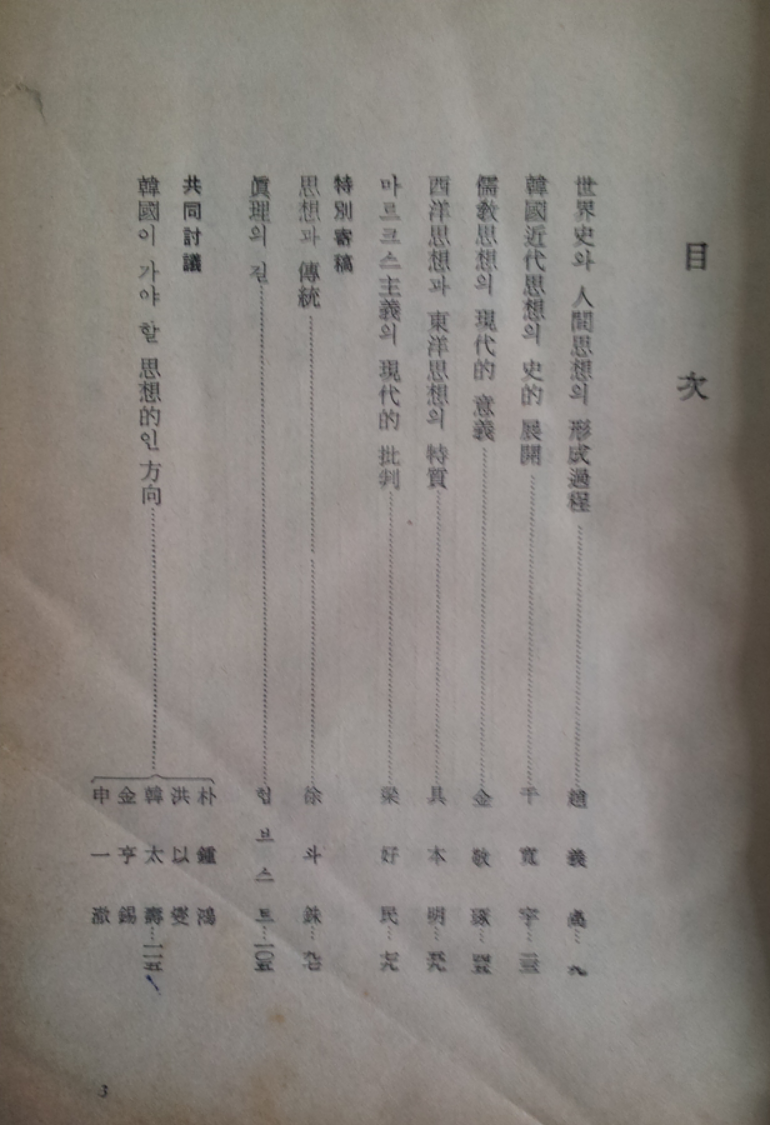 目次
世界史와 人間思想의 形成過程 趙義卨 九
韓國近代思想의 史的 展開 千寬宇 二三
儒敎思想의 現代的 意義 金敬琢 四五
西洋思想과 東洋思想의 特質 具本明 五九
마르크스主義의 現代的 批判 梁好民 七九
特別寄稿
思想과 傳統 徐斗銖 九七
眞理의 길 험브스트 一〇五
共同討議
韓國이 가야 할 思想的인 方向
朴鍾鴻
洪以燮
韓太壽 一一五
金亨錫
申一澈
3